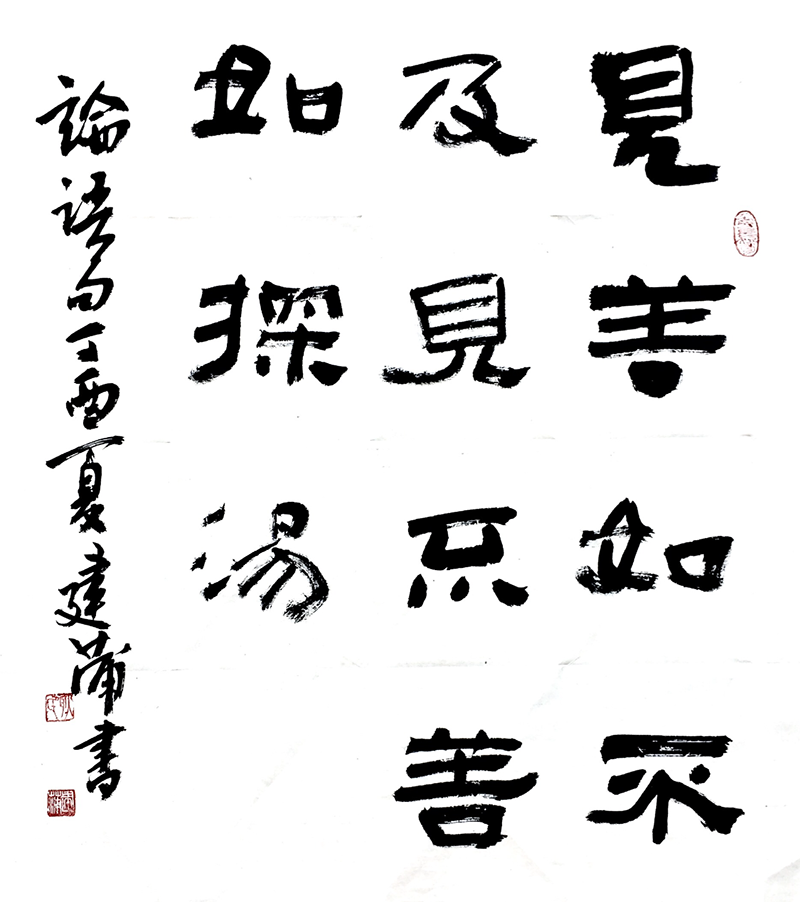 見善如不
及見不善
如探湯
論語句丁酉夏建蒲書